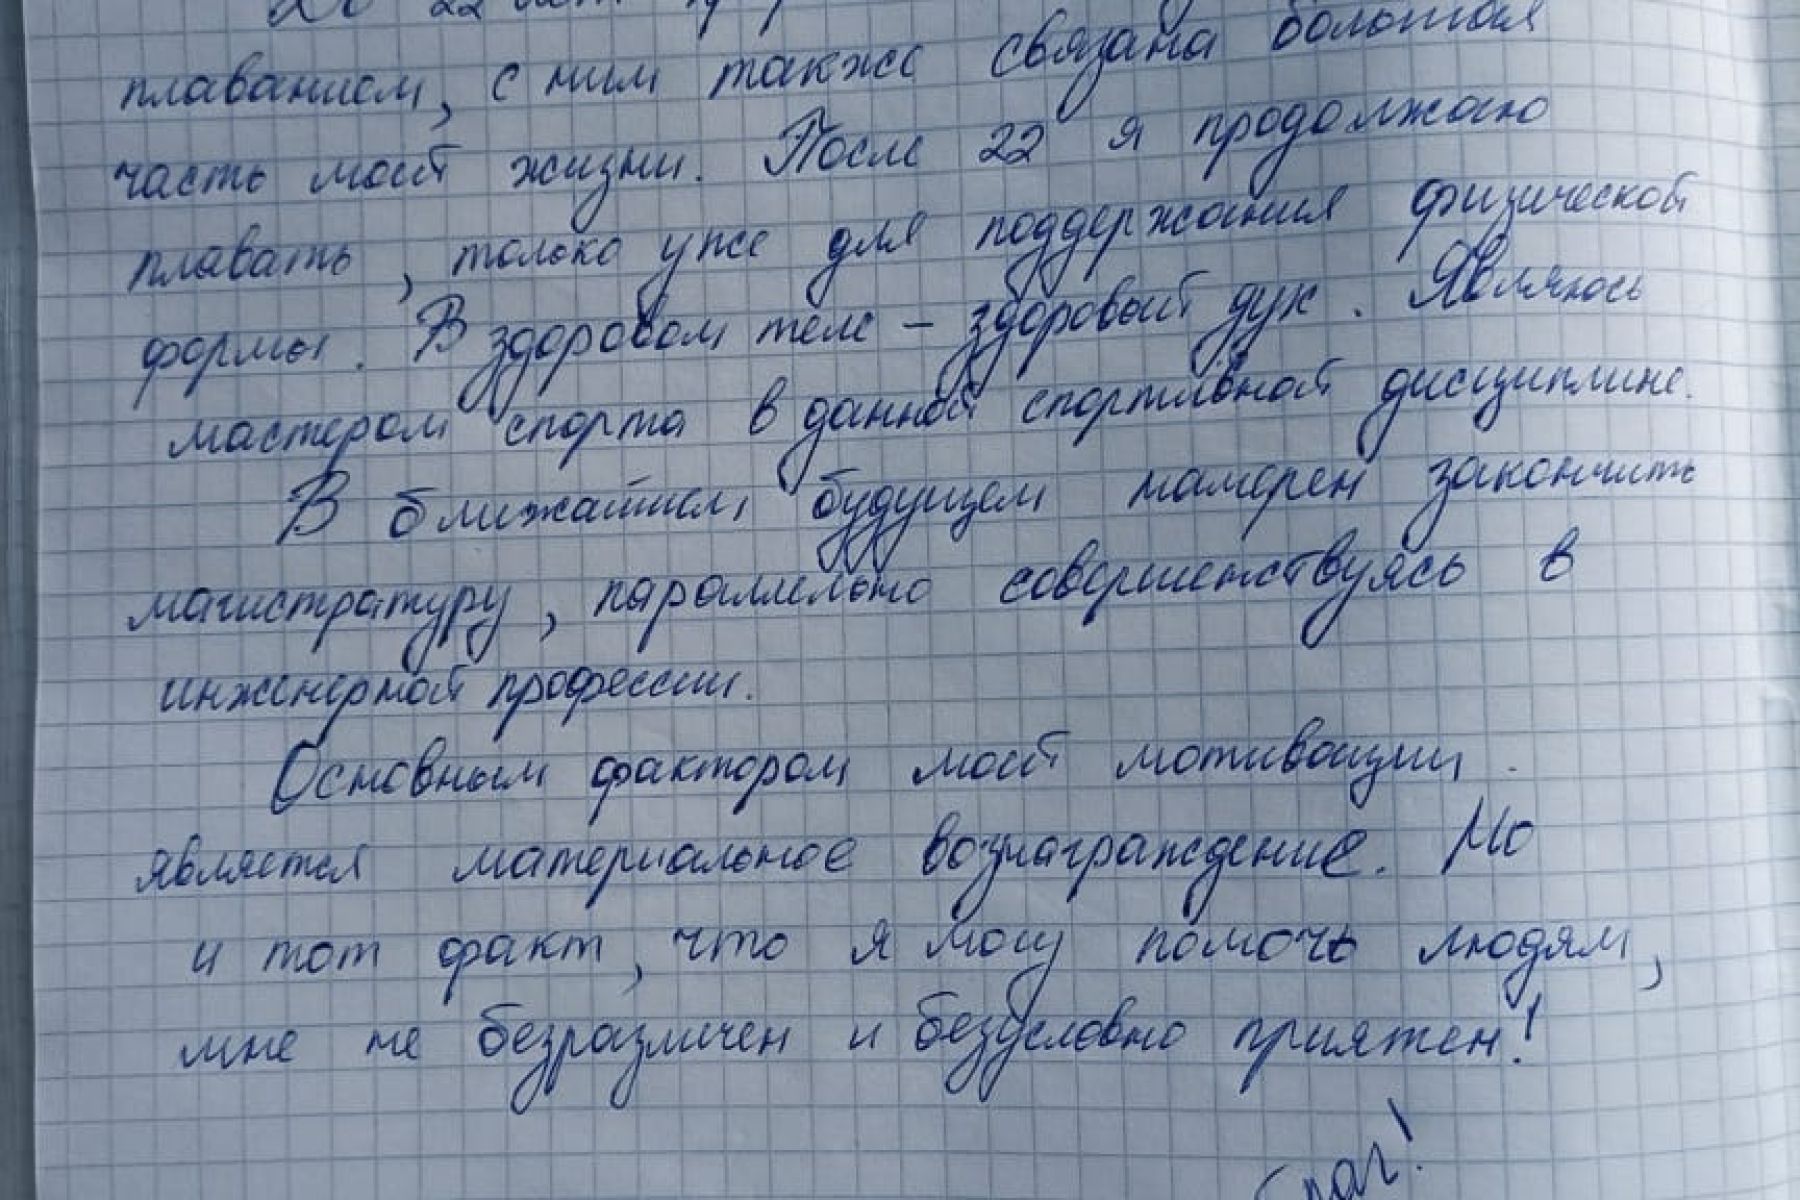 До 22 лет
плаванием, с ним также связана большая
часть моей жизни. После 22 я продолжаю
плавать, только уже для поддержания физической
формы. В здоровом теле - здоровый дух. Являюсь
мастером спорта в данной спортивной дисциплине.
В ближайшем будущем намерен закончить
магистратуру, параллельно совершенствуясь в
инженерной профессии.
Основным фактором моей мотивации
является материальное вознаграждение. Но
и тот факт, что я могу помочь людям,
мне не безразличен и безусловно приятен!